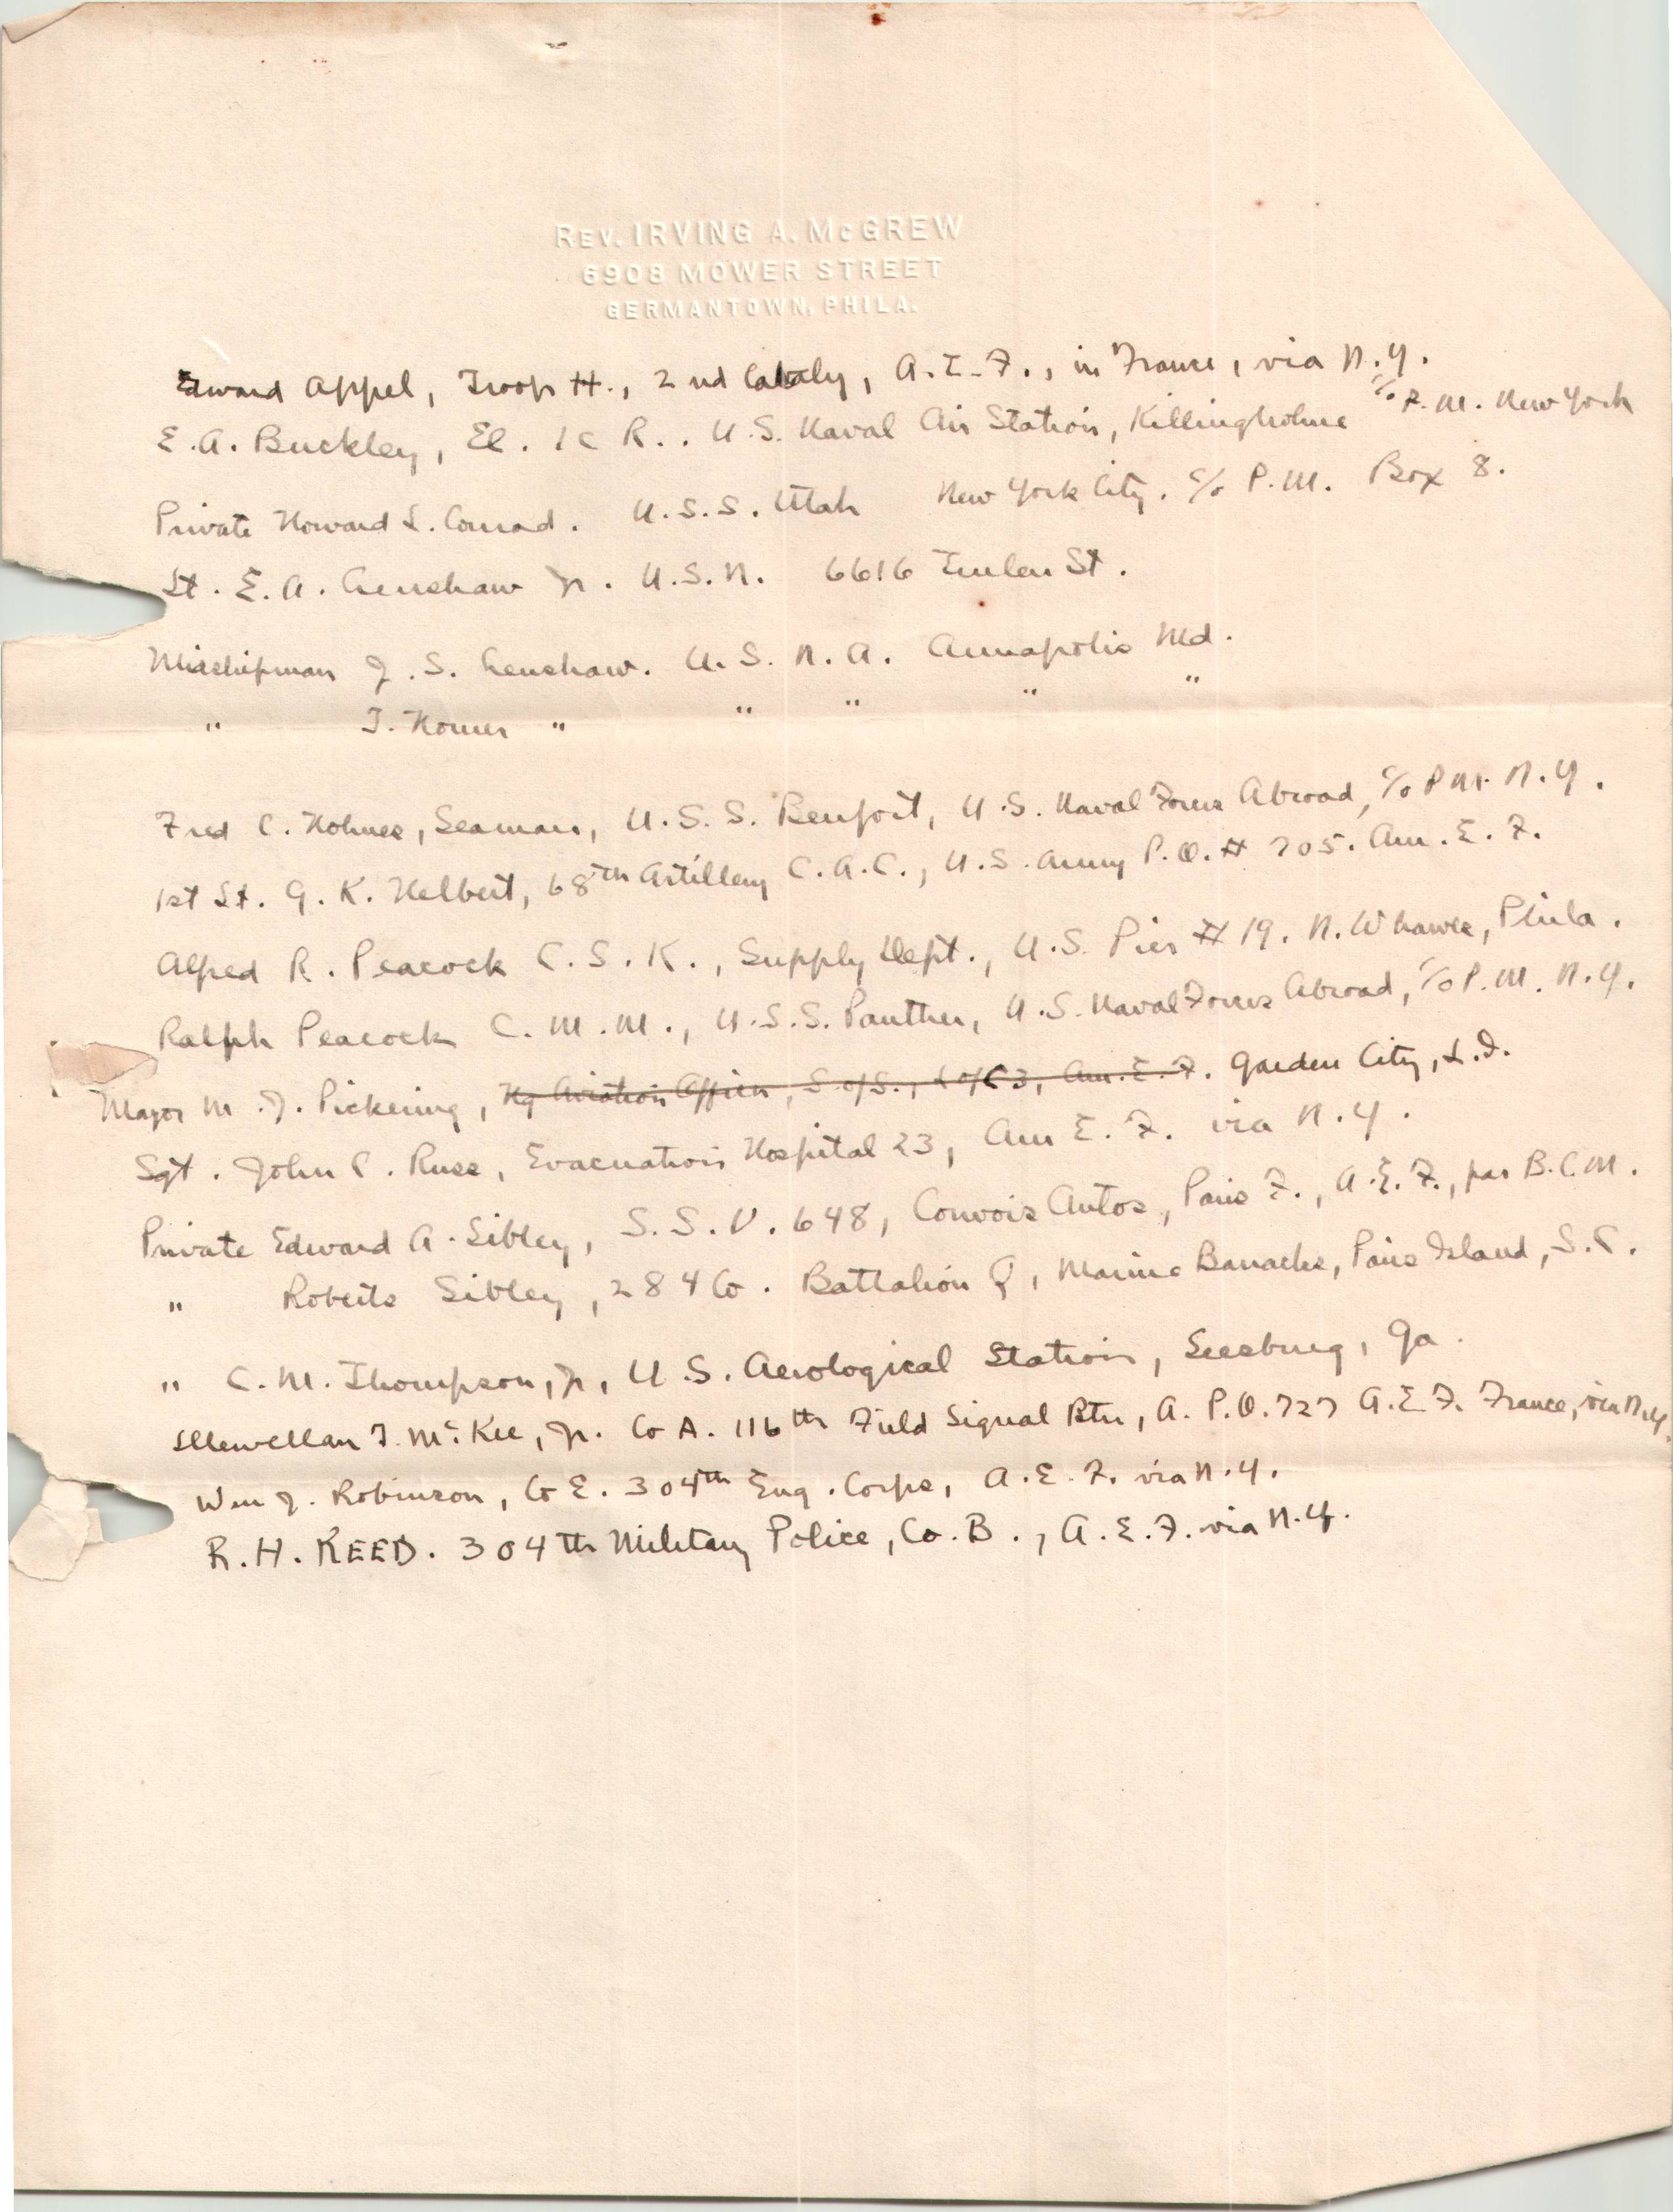 REV. IRVING A. McGREW
6908 MOWER STREET
GERMANTOWN, PHILA.
Edward Appel, Troop H., 2nd Cavalry, A.E.F., in France, via N.Y.
E.A. Buckley, El. 1C R.. U.S. Naval Air Station, Killingholme c/o P.M. New York
Private Howard L. Conrad. U.S.S. Utah New York City. c/o P.M. Box 8.
Lt. E.A. Crenshaw Jr. U.S.N. 6616 Emlen St.
Midshipman J.S. Crenshaw. U.S.N.A. Annapolis Md.
" T. Homer " " " " "
Fred C. Holmes, Seaman, U.S.S. Benfort, U.S. Naval Forces Abroad, c/o P.M. N.Y.
1st Lt. G.K. Helbert, 68th Artillery C.A.C., U.S. Army P.O. # 705. Am. E.F.
Alfred R. Peacock C.S.K., Supply Dept., U.S. Pier # 19. N. Wharves, Phila.
Ralph Peacock C.M.M., U.S.S. Panther, U.S. Naval Forces Abroad, c/o P.M. N.Y.
Major M.J. Pickering, Hq Aviation Officer, S of S., L of C 3, Am. E.F. Garden City, L.I.
Sgt. John C. Russ, Evacuation Hospital 23, Am E.F. via N.Y.
Private Edward A. Sibley, S.S.U. 648, Convois Autos, Paris F., A.E.F., par B.C.M.
" Roberts Sibley, 284 Co. Battalion Q, Marine Barracks, Paris Island, S.C.
" C.M. Thompson, Jr, U.S. Aerological Station, Leesburg, Ga.
Llewellan T. McKee, Jr. Co A. 116th Field Signal Btn, A.P.O. 727 A.E.F. France, via N.Y.
Wm J. Robinson, Co E. 304th Eng. Corps, A.E.F. via N.Y.
R.H. REED. 304th Military Police, Co. B., A.E.F. via N.Y.